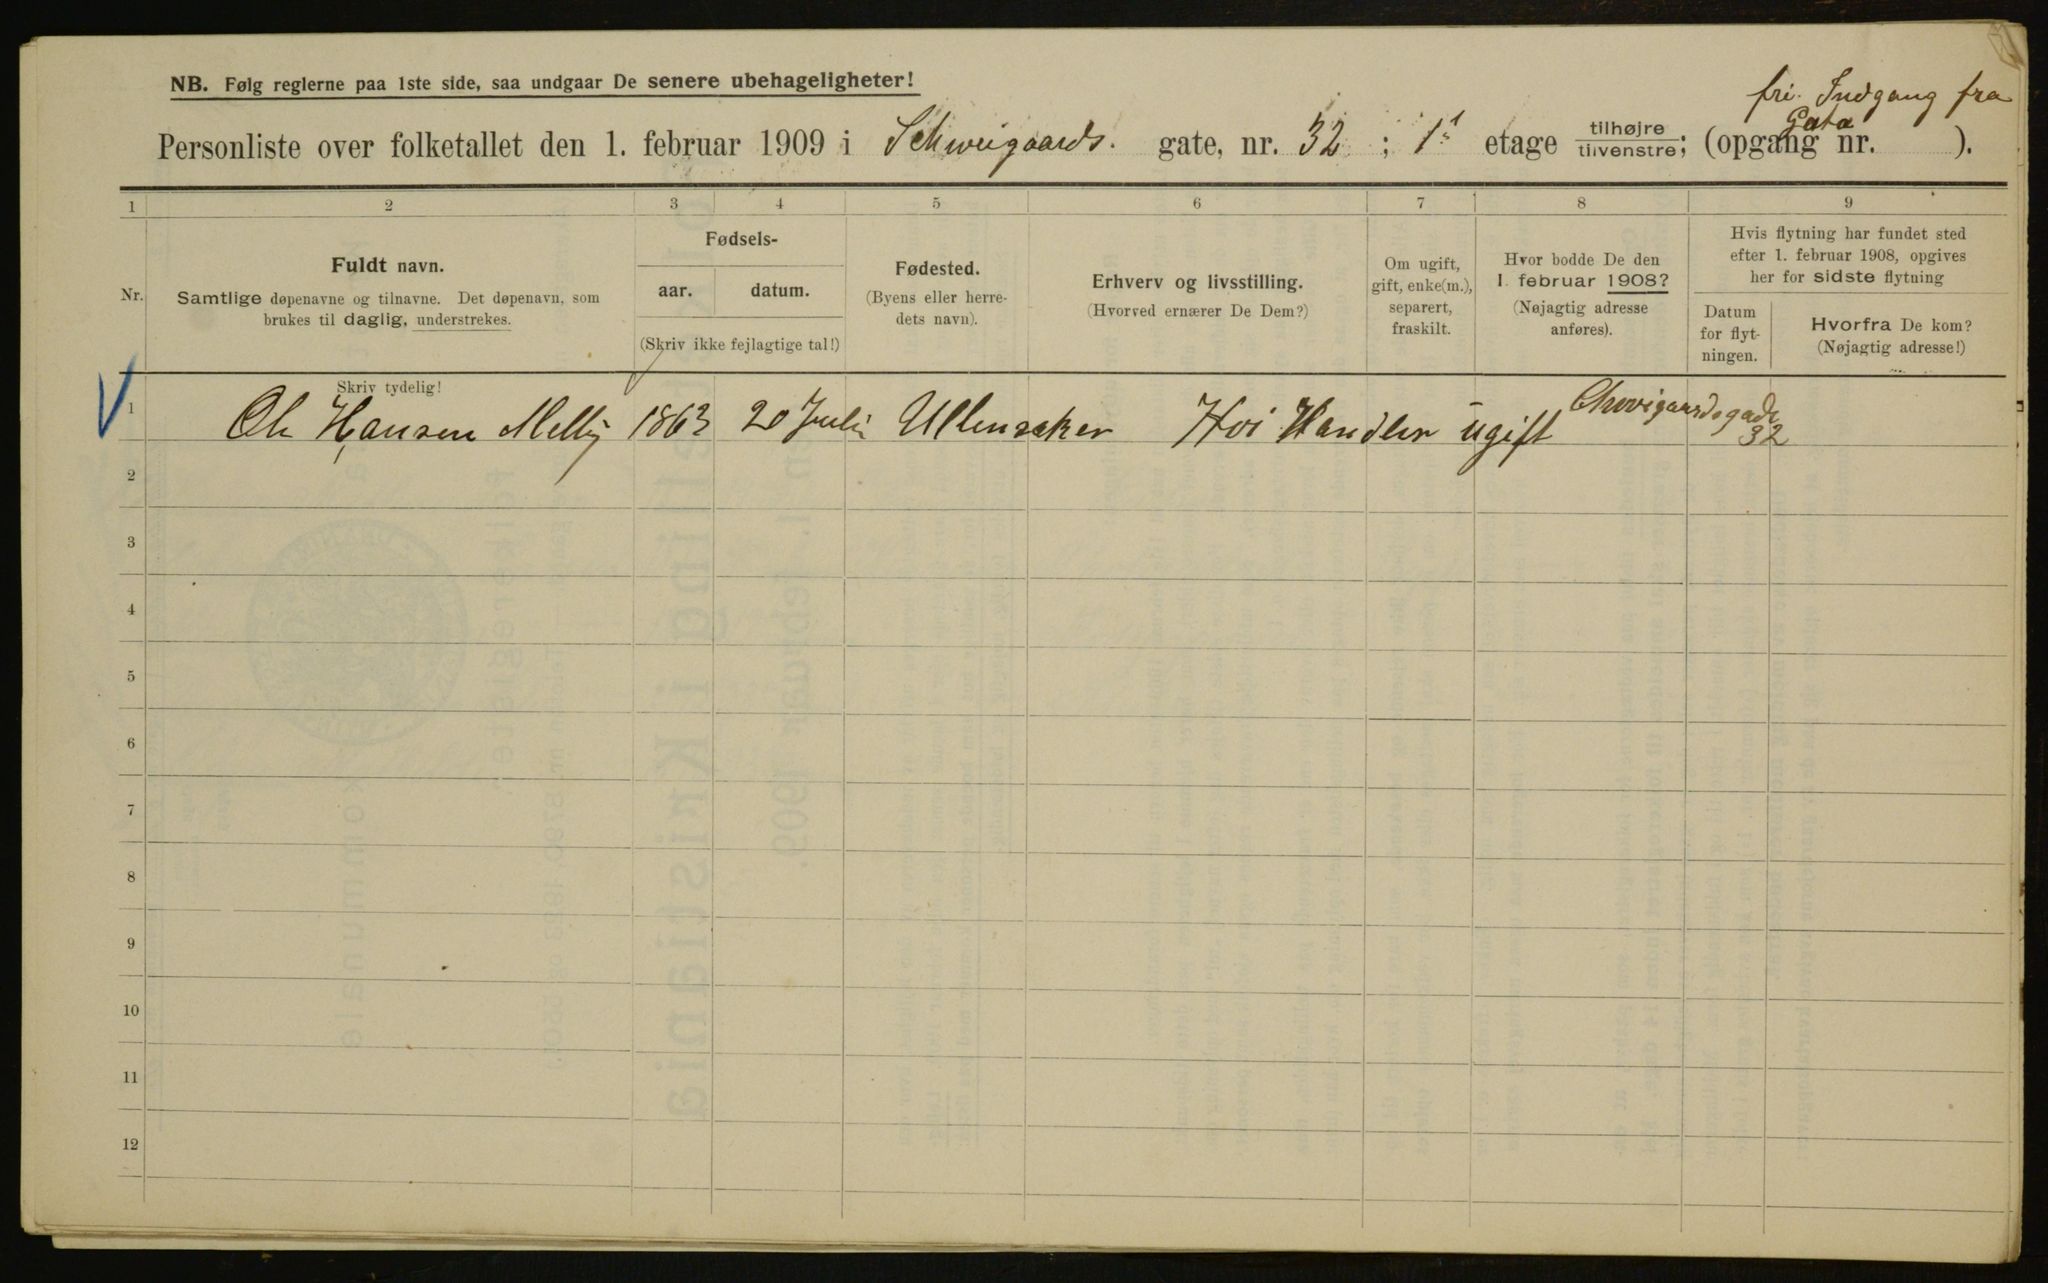 NB. Følg reglerne paa 1ste side, saa undgaar De senere ubehageligheter!
fri. Indgang fra
Gata
Personliste over folketallet den 1. februar 1909 i Schweigaards. gate, nr. 32 ; 1ª etage tilhøjre/tilvenstre; (opgang nr. ).
1 2 3 4 5 6 7 8 9
Nr.
Fuldt navn.
Samtlige døpenavne og tilnavne. Det døpenavn, som
brukes til daglig, understrekes.
Fødsels-
aar. datum.
(Skriv ikke fejlagtige tal!)
Fødested.
(Byens eller herre-
dets navn).
Erhverv og livsstilling.
(Hvorved ernærer De Dem?)
Om ugift,
gift, enke(m.),
separert,
fraskilt.
Hvor bodde De den
1. februar 1908?
(Nøjagtig adresse
anføres).
Hvis flytning har fundet sted
efter 1. februar 1908, opgives
her for sidste flytning
Datum
for flyt-
ningen.
Hvorfra De kom?
(Nøjagtig adresse!)
Skriv tydelig!
1 Ole Hansen Melby 1863 20 Juli Ullensaker Høi Handler ugift Chveigaardsgade
32
2
3
4
5
6
7
8
9
10
11
12